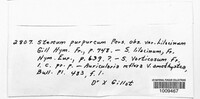 2807. Stereum purpureum Pers. obs. var. lilacinum
Gill. Hym. Fr., p. 748. — S. lilacinum, Fr.
Hym. Eur., p. 639. ?, S. Vorticosum Fr.
l. c. pr. p. — Auricularia reflexa V. amethystea,
Bull. Pl. 483, f. 1.
Dr X Gillot
1009467